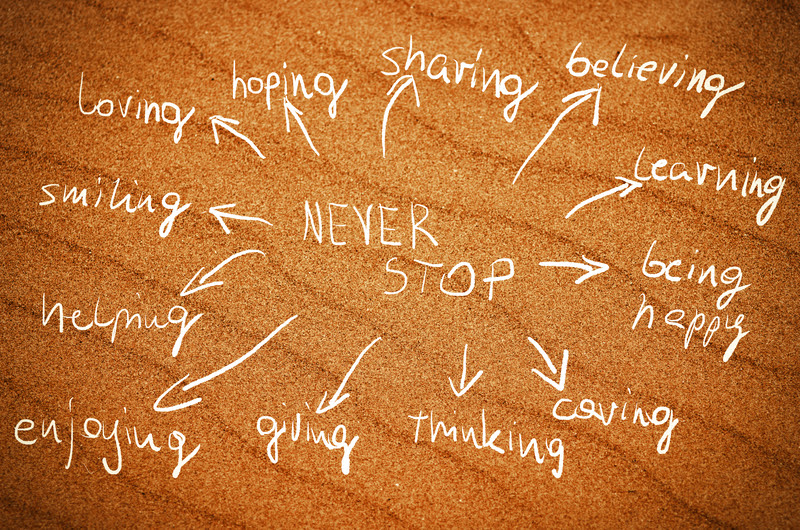 sharing
believing
hoping
loving
learning
smiling
NEVER
STOP
being
happy
helping
caring
enjoying
giving
thinking